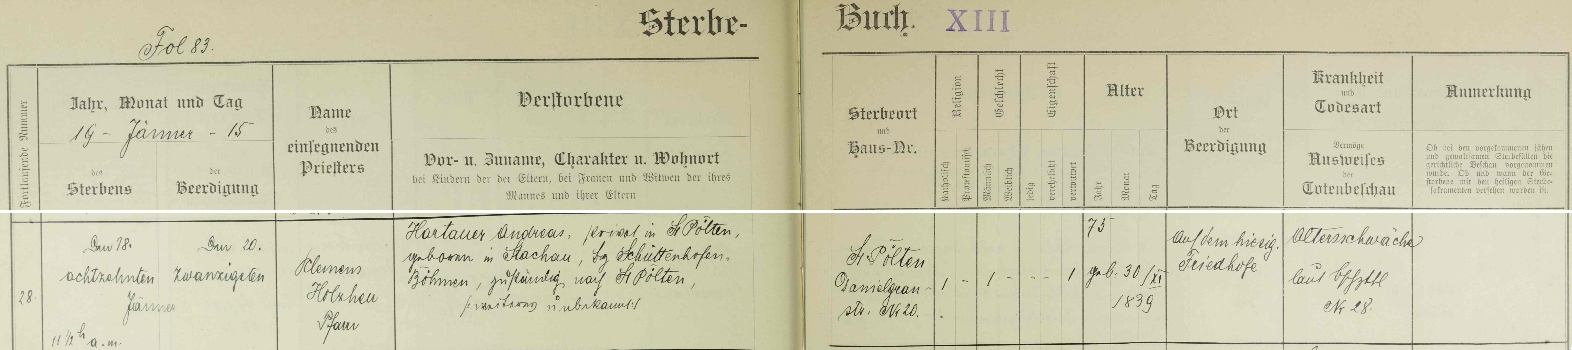 Fol 83.
Sterbe-
Buch. XIII
Fortlaufende Nummer
Jahr, Monat und Tag
19 - Jänner - 15
des
Sterbens
der
Beerdigung
Name
des
einsegnenden
Priesters
Verstorbene
Vor- u. Zuname, Charakter u. Wohnort
bei Kindern der der Eltern, bei Frauen und Witwen der ihres
Mannes und ihrer Eltern
Sterbeort
und
Haus-Nr.
Religion
Katholisch
Protestantisch
Geschlecht
Männlich
Weiblich
Eigenschaft
ledig
verehelicht
verwitwet
Alter
Jahr
Monat
Tag
Ort
der
Beerdigung
Krankheit
und
Todesart
Vermöge
Ausweises
der
Totenbeschau
Anmerkung
Ob bei den vorgekommenen jähen
und gewaltsamen Sterbefällen die
gerichtliche Beschau vorgenommen
wurde. Ob und wann der Ge-
storbene mit den heiligen Sterbe-
sakramenten versehen worden ist.
28.
Den 18.
achtzehnten
Jänner
11 1/2 h a.m.
Den 20.
zwanzigsten
Klemens
Holzheu
Pfarr
Hartauer Andreas, privat in St Pölten,
geboren in Stachau, Bez Schüttenhofen,
Böhmen, zuständig nach St Pölten,
/:weiteres unbekannt:/
St Pölten
Danielgran-
str. Nr 20.
1 - 1 - - - 1
75
geb. 30/XI
1839
Auf dem hiesig.
Friedhofe
Altersschwäche
laut
Nr 28.